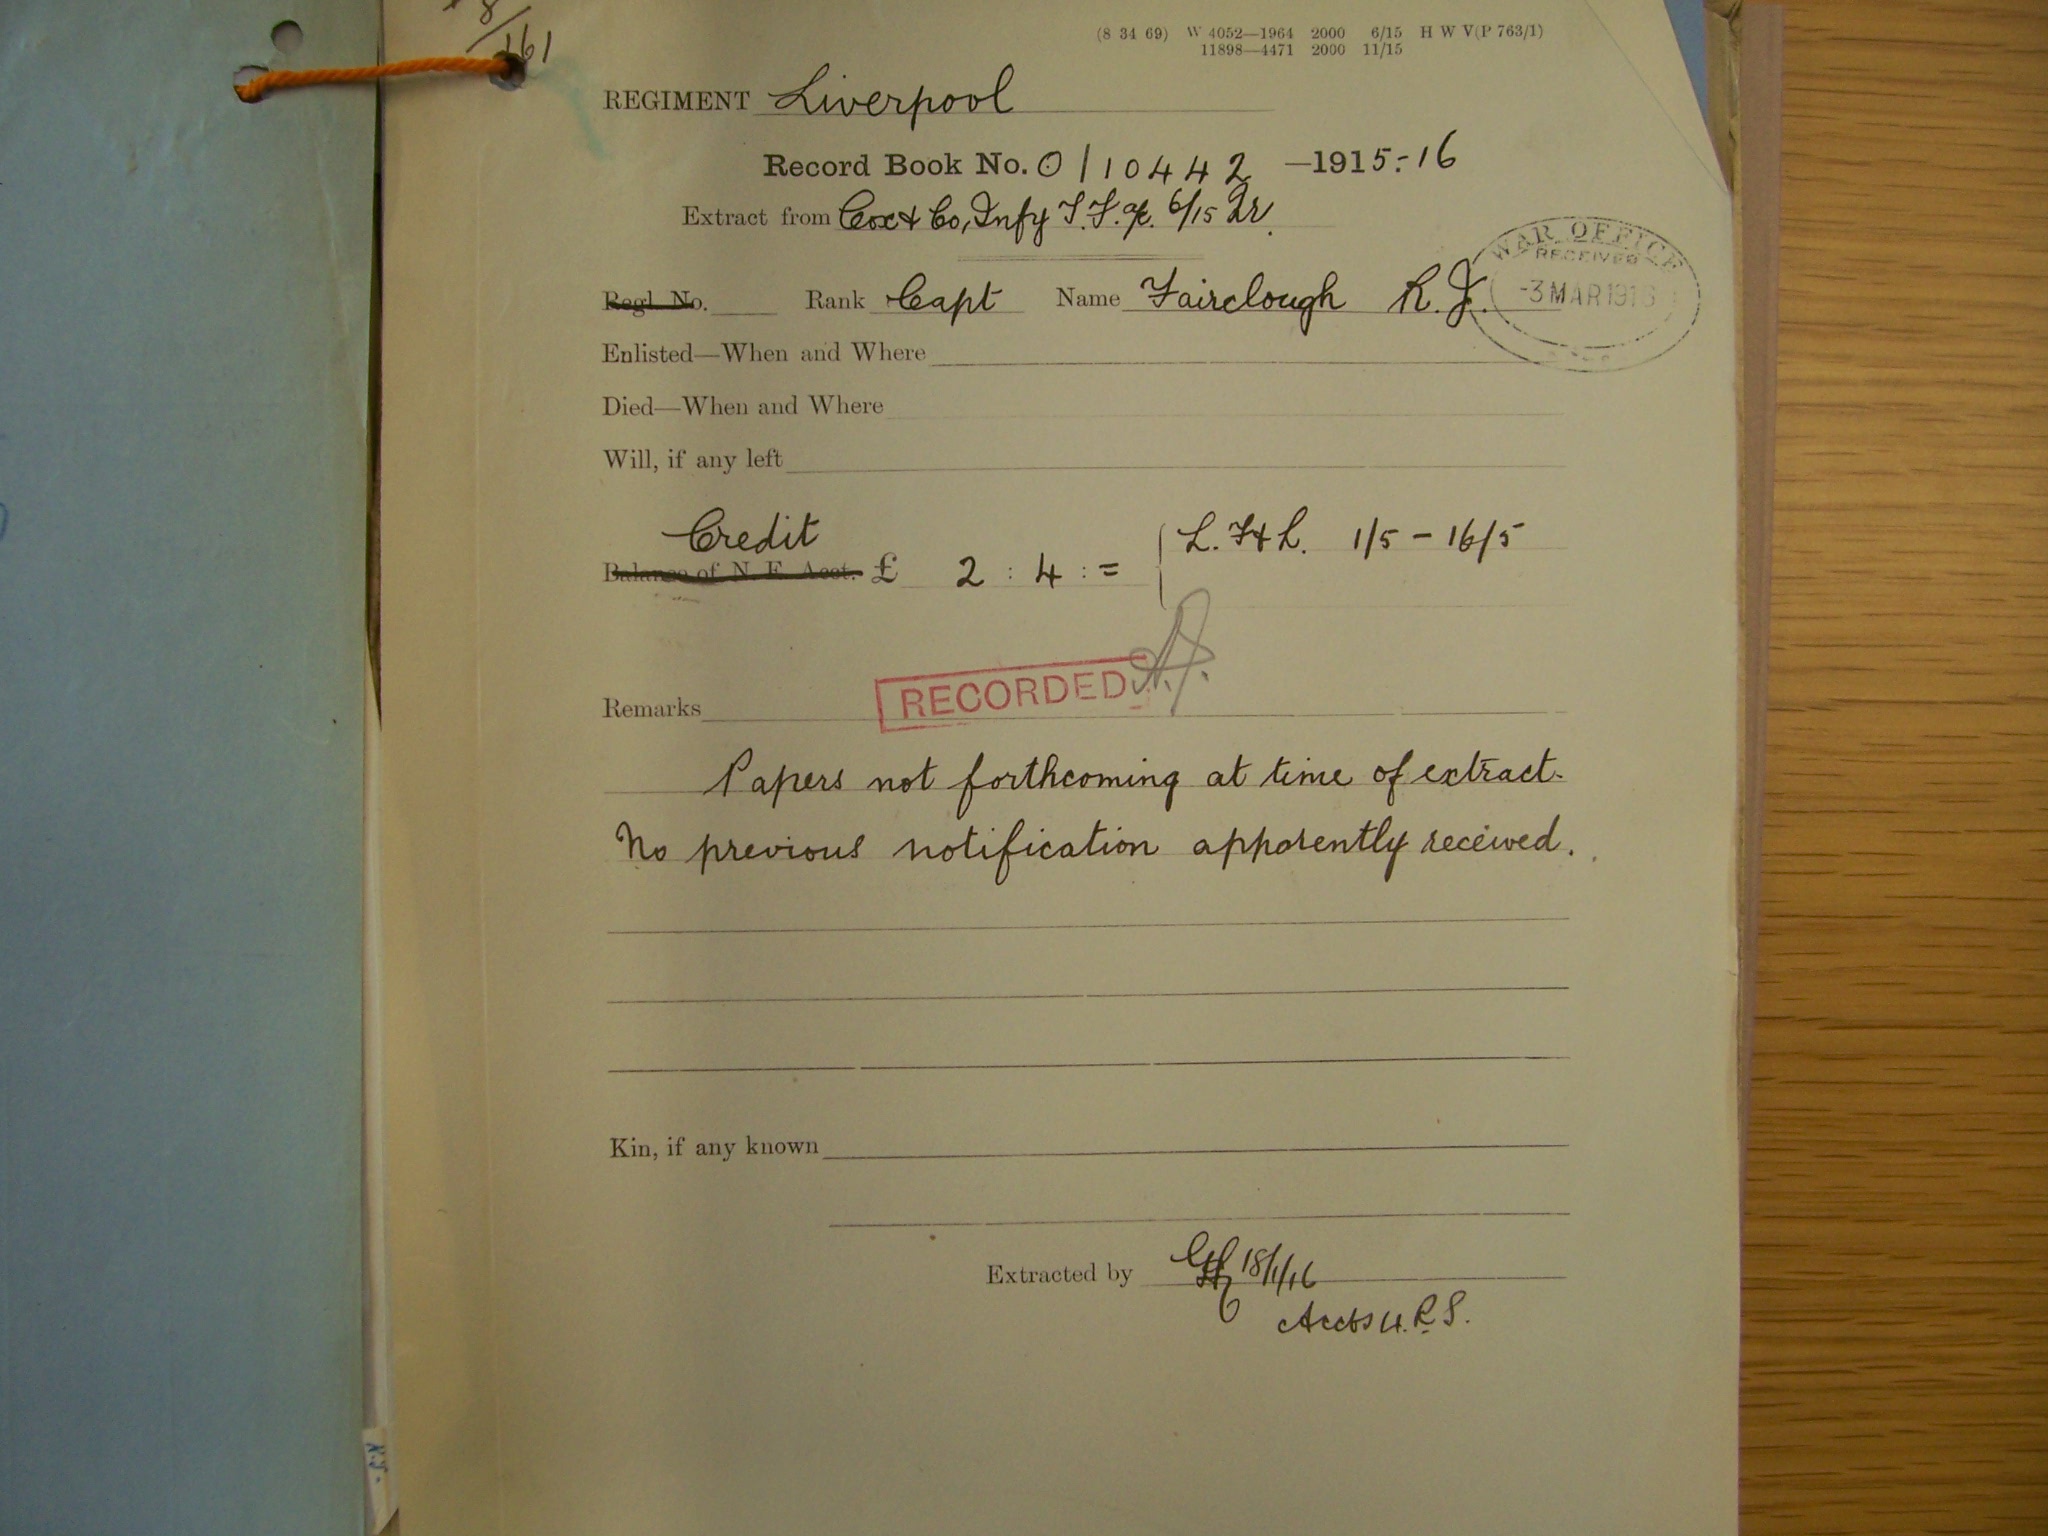 8/161
(8 34 69) W 4052—1964 2000 6/15 H W V(P 763/1)
11898—4471 2000 11/15
REGIMENT Liverpool
Record Book No. 0/10442 —1915-16
Extract from Cox & Co, Infy T.F. 6/15 Qr.
WAR OFFICE
RECEIVED
-3 MAR 1916
Regl. No. Rank Capt Name Fairclough R. J.
Enlisted—When and Where
Died—When and Where
Will, if any left
Credit
L. F & L. 1/5 - 16/5
Balance of N. E. Acct. £ 2 : 4 : =
RECORDED
Remarks
Papers not forthcoming at time of extract.
No previous notification apparently received.
Kin, if any known
Extracted by 18/1/16
Accts 4. R. S.